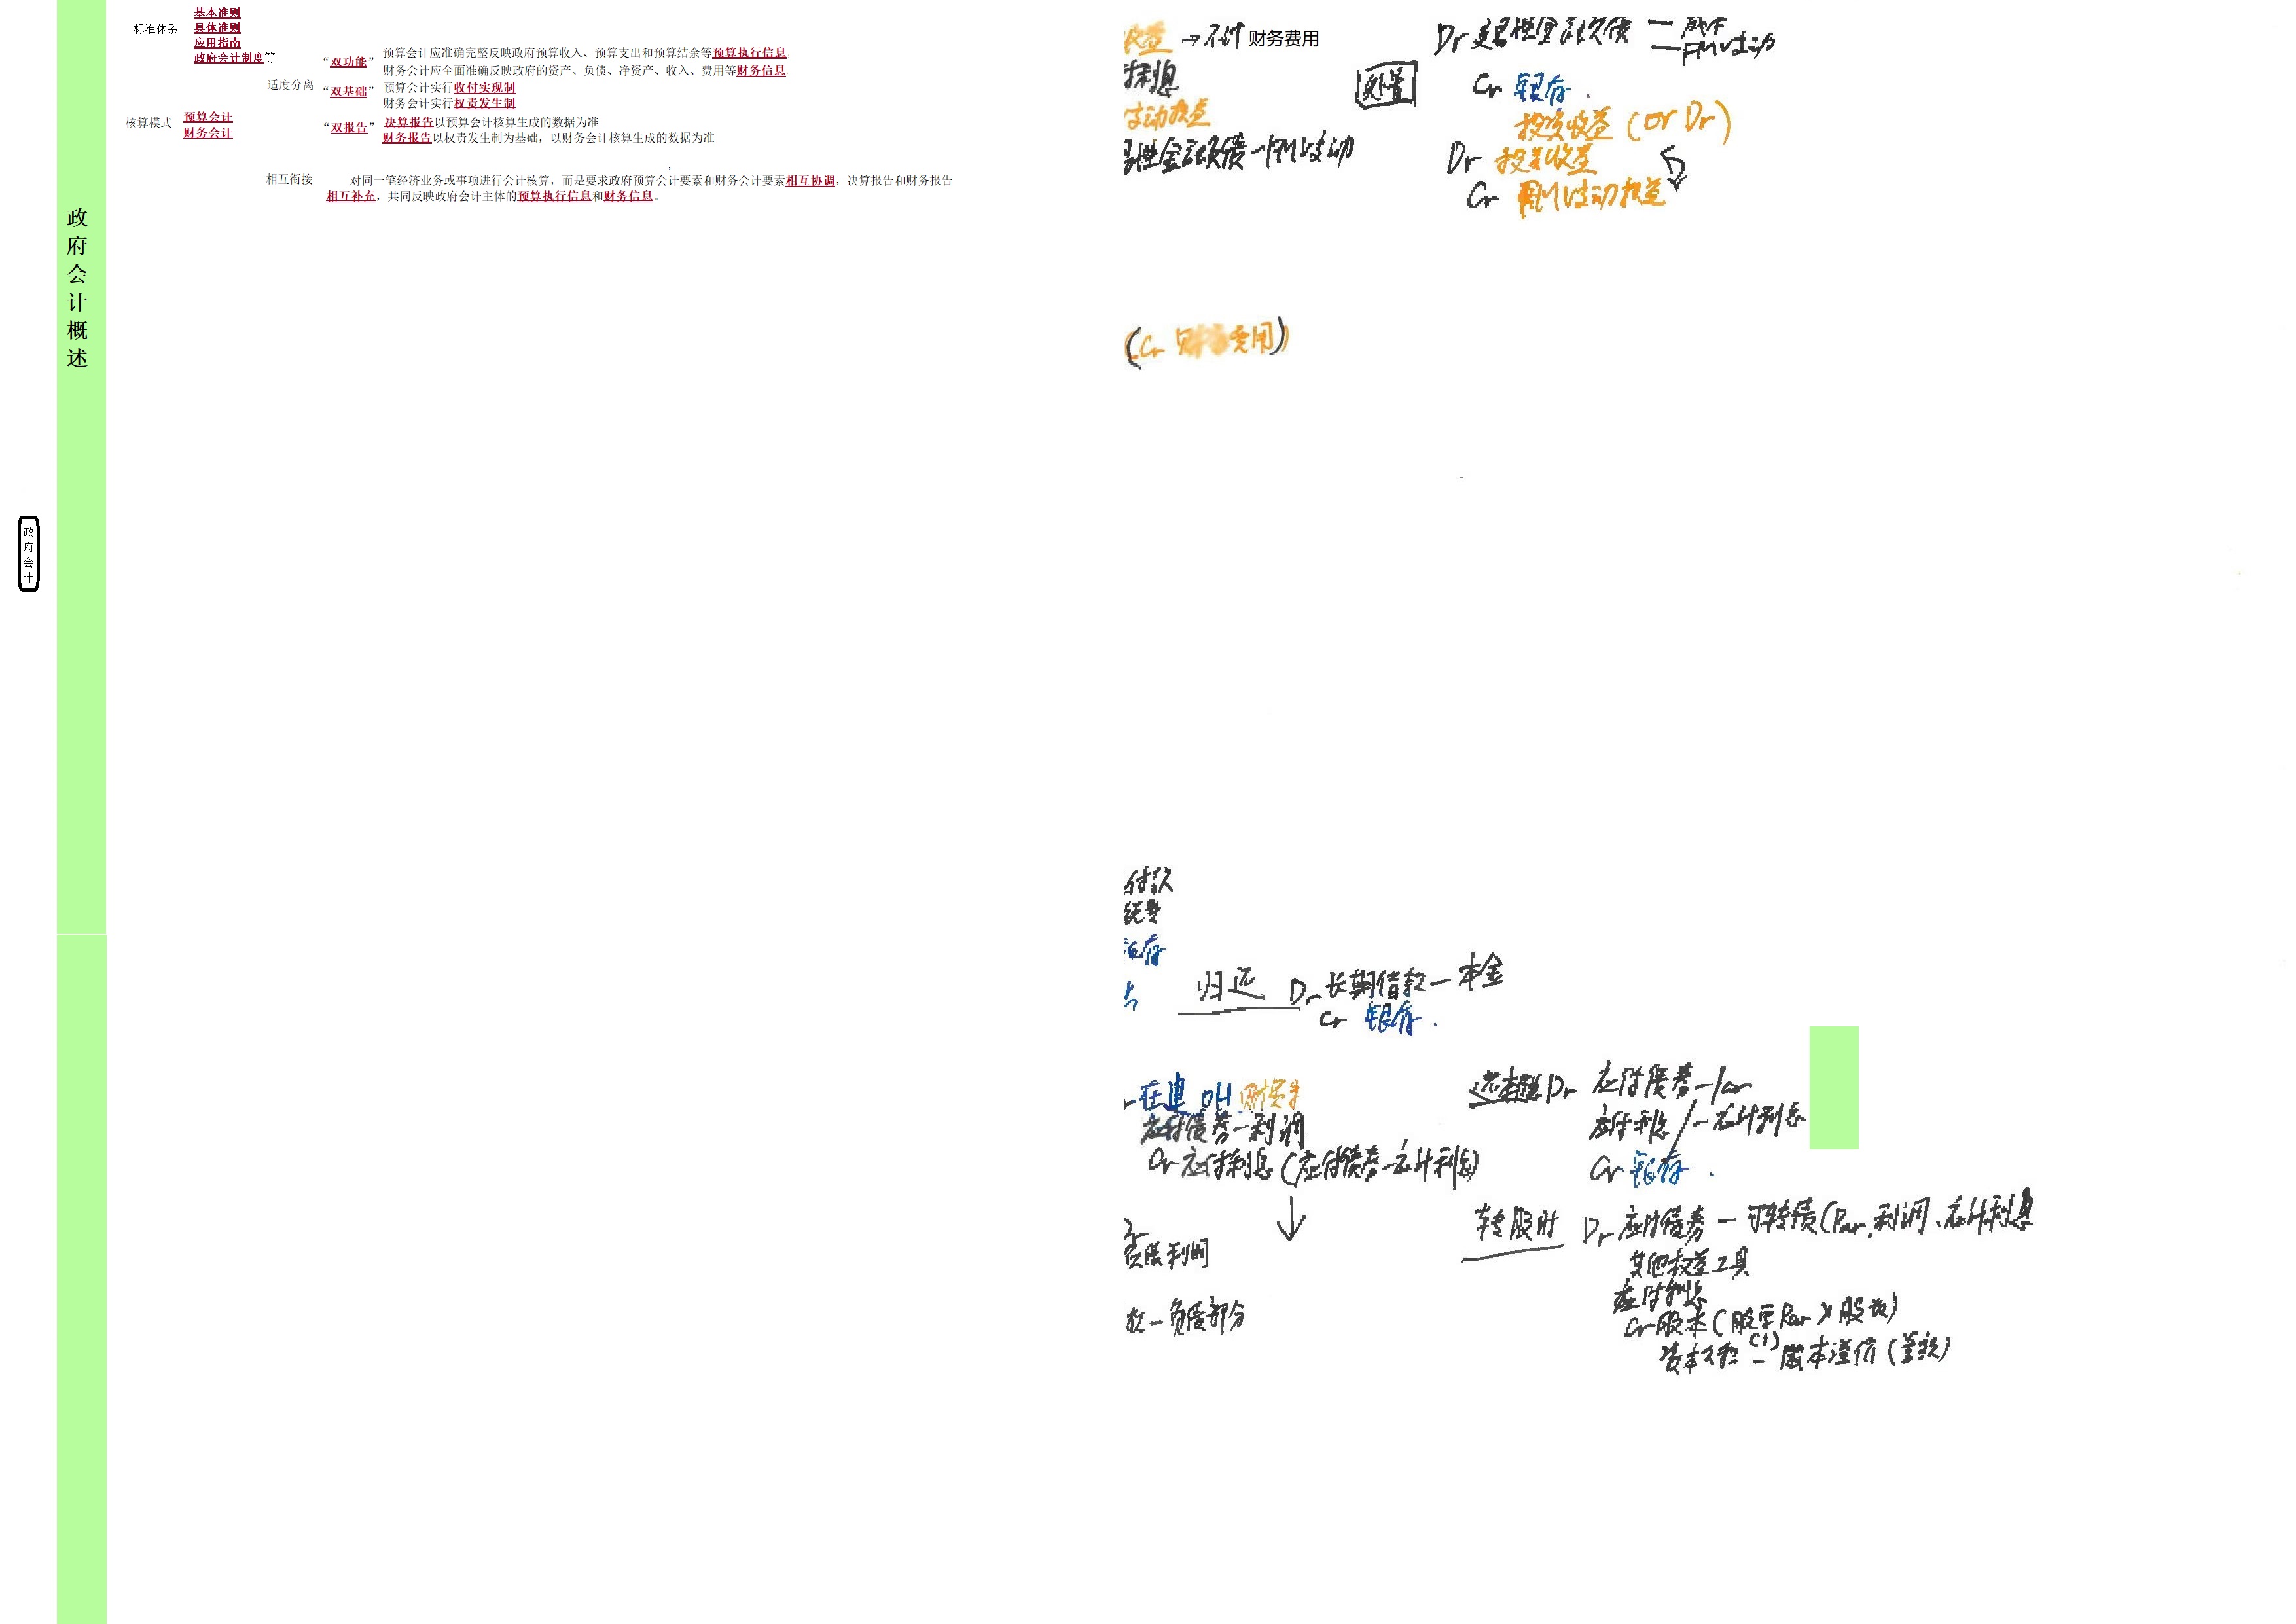 政府会计
政府会计概述
标准体系
基本准则
具体准则
应用指南
政府会计制度等
核算模式
预算会计
财务会计
适度分离
“双功能”
预算会计应准确完整反映政府预算收入、预算支出和预算结余等预算执行信息
财务会计应全面准确反映政府的资产、负债、净资产、收入、费用等财务信息
“双基础”
预算会计实行收付实现制
财务会计实行权责发生制
“双报告”
决算报告以预算会计核算生成的数据为准
财务报告以权责发生制为基础，以财务会计核算生成的数据为准
相互衔接
对同一笔经济业务或事项进行会计核算，而是要求政府预算会计要素和财务会计要素相互协调，决算报告和财务报告
相互补充，共同反映政府会计主体的预算执行信息和财务信息。
收益 →不计 财务费用
利息
变动损益
性金融负债-FMV变动
处置
Dr 交易性金融负债 — 成本
—FMV变动
Cr 银存.
投资收益 (or Dr)
Dr 投资收益
Cr FMV变动损益
(Cr 费用)
付款
银存
归还 Dr 长期借款—本金
Cr 银存.
在建 OH 财费等
应付债券—利调
Cr 应付利息 (应付债券—应计利息)
↓
Dr 应付债券—Par
应付利息/—应计利息
Cr 银存.
转股时 Dr 应付债券—可转债(Par.利调、应计利息
其他权益工具
应付利息
Cr 股本(股票Par×股数)
资本公积(1)—股本溢价(差额)
利调
—负债部分